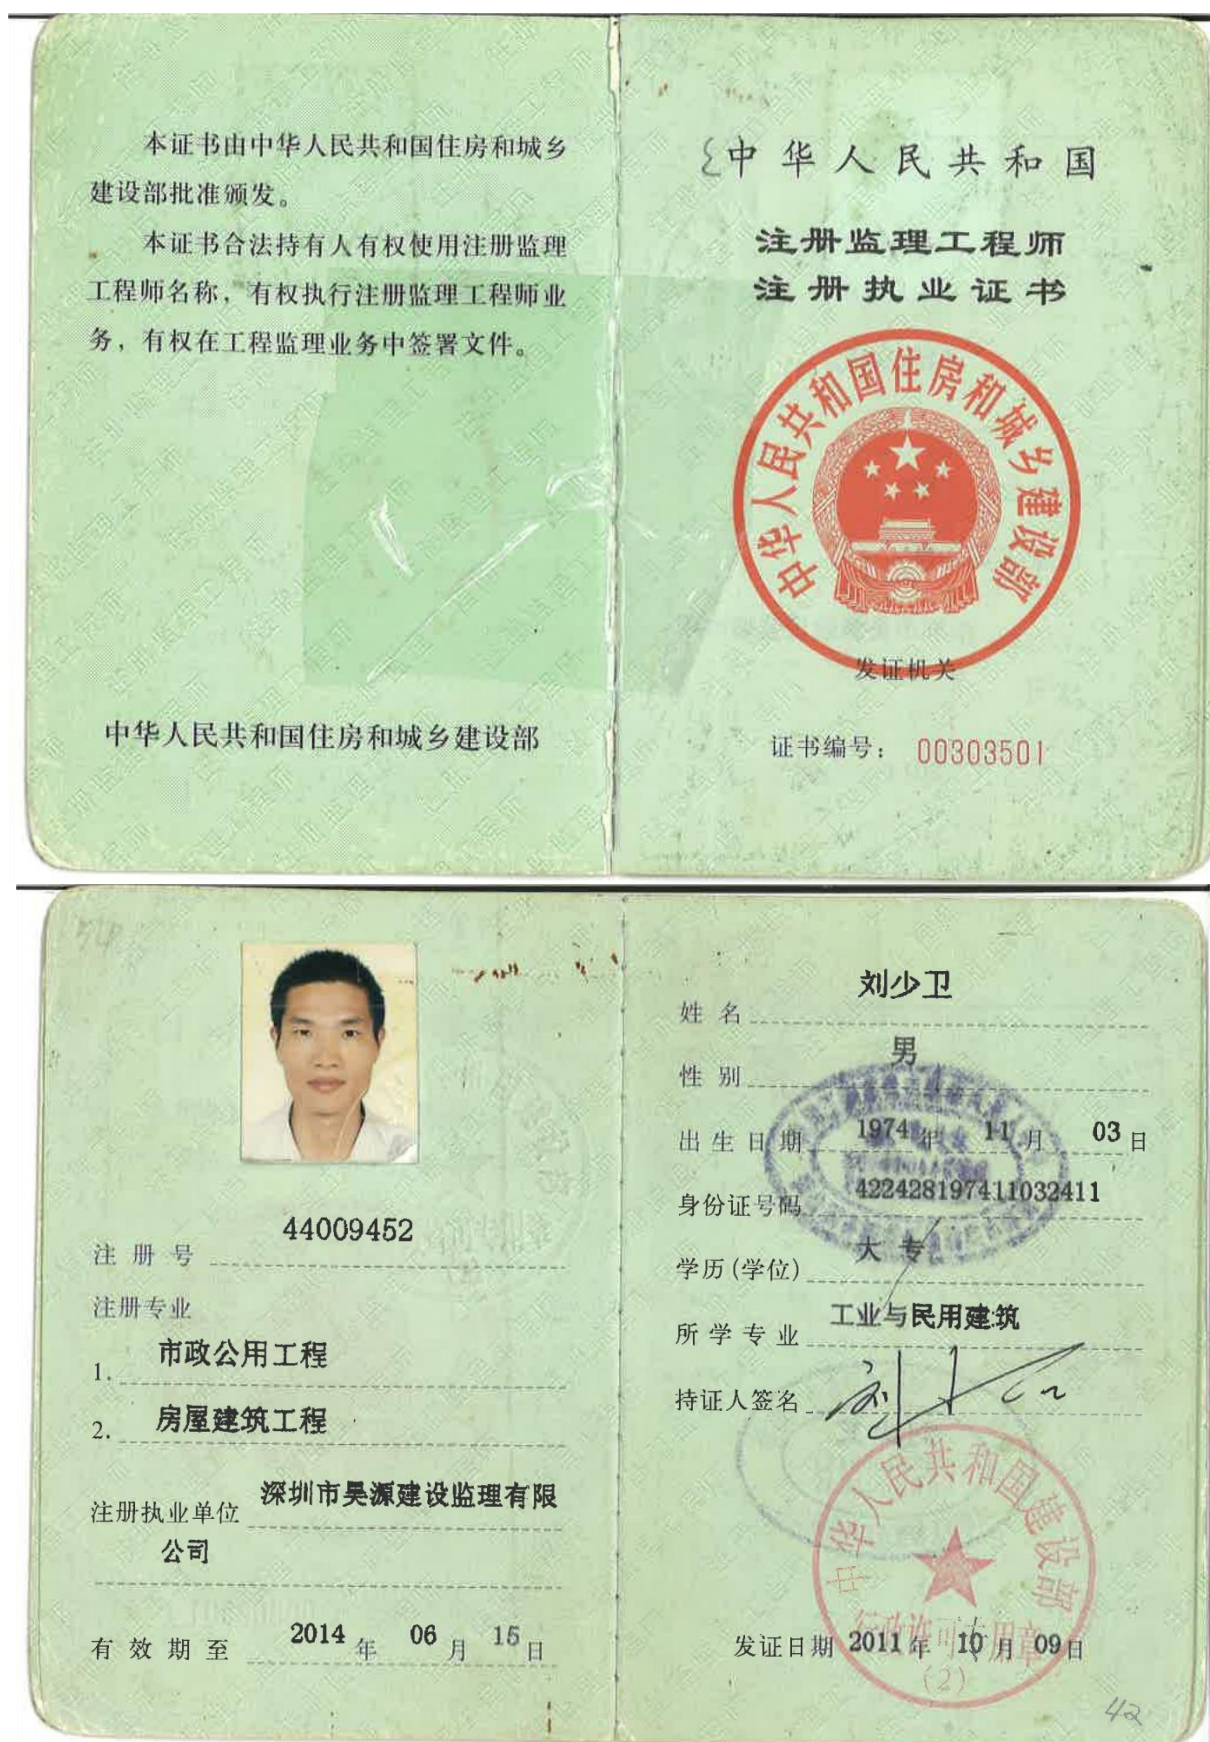 本证书由中华人民共和国住房和城乡
建设部批准颁发。
本证书合法持有人有权使用注册监理
工程师名称，有权执行注册监理工程师业
务，有权在工程监理业务中签署文件。
中华人民共和国住房和城乡建设部
中华人民共和国
注册监理工程师
注册执业证书
中华人民共和国住房和城乡建设部
发证机关
证书编号： 00303501
注册号 44009452
注册专业
1. 市政公用工程
2. 房屋建筑工程
注册执业单位 深圳市昊源建设监理有限
公司
有效期至 2014 年 06 月 15 日
姓名 刘少卫
性别 男
出生日期 1974 年 11 月 03 日
身份证号码 422428197411032411
学历(学位) 大专
所学专业 工业与民用建筑
持证人签名
中华人民共和国建设部
行政许可专用章
(2)
发证日期 2011 年 10 月 09 日
42